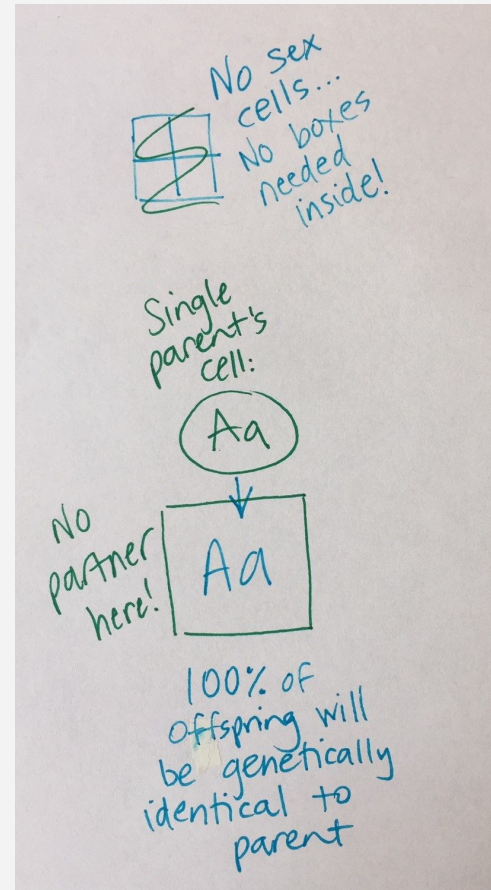 No sex
cells...
No boxes
needed
inside!
Single
parent's
cell:
Aa
No
partner
here!
Aa
100% of
offspring will
be genetically
identical to
parent